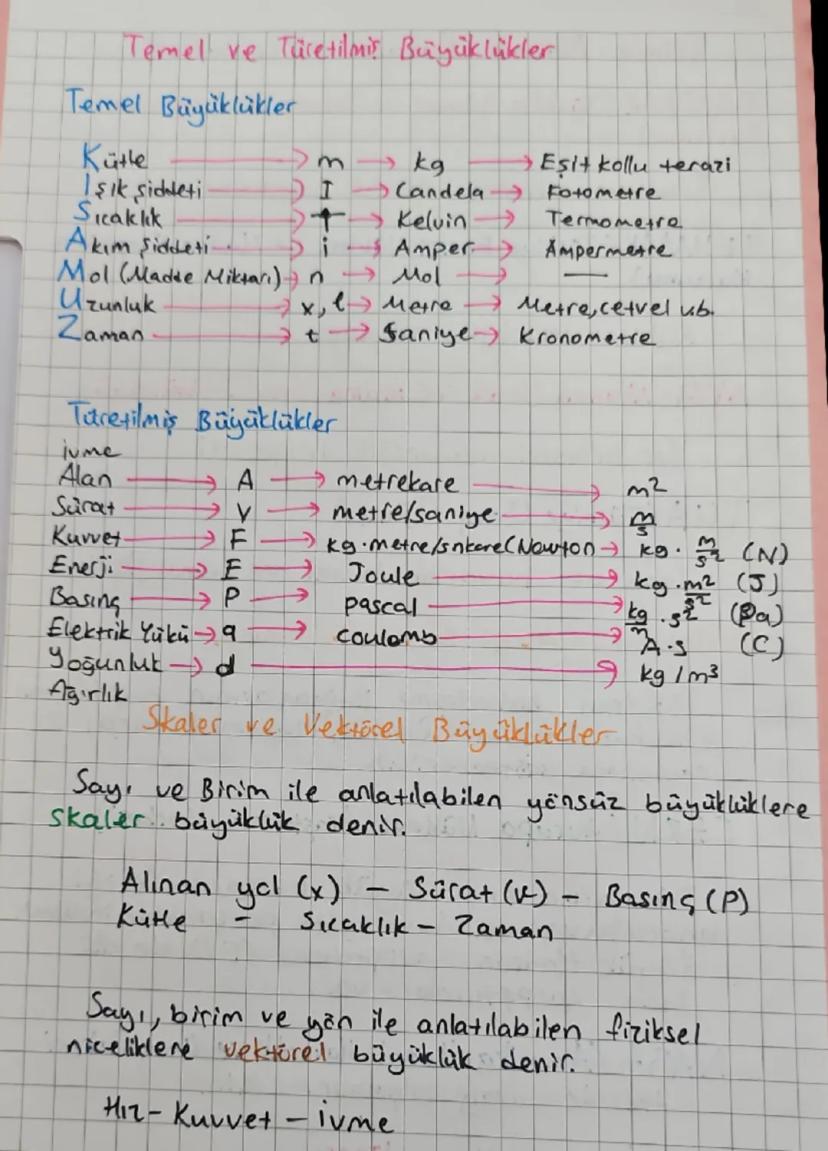 Temel ve Türetilmiş Büyüklükler
Temel Büyüklükler
Kütle → m → kg → Eşit kollu terazi
Işık şiddeti → I → Candela → Fotometre
Sıcaklık → T → Kelvin → Termometre
Akım Şiddeti → i → Amper → Ampermetre
Mol (Madde Miktarı) → n → Mol → —
Uzunluk → x, l → Metre → Metre, cetvel vb.
Zaman → t → Saniye → Kronometre
Türetilmiş Büyüklükler
ivme
Alan → A → metrekare → m²
Sürat → V → metre/saniye → m/s
Kuvvet → F → kg·metre/snkare(Newton → kg · m/s² (N)
Enerji → E → Joule → kg · m²/s² (J)
Basınç → P → pascal → kg/m · s² (Pa)
Elektrik Yükü → q → coulomb → A·s (C)
Yoğunluk → d → kg/m³
Ağırlık
Skaler ve Vektörel Büyüklükler
Sayı ve Birim ile anlatılabilen yönsüz büyüklüklere
skaler büyüklük denir.
Alınan yol (x) – Sürat (v) – Basınç (P)
Kütle – Sıcaklık – Zaman
Sayı, birim ve yön ile anlatılabilen fiziksel
niceliklere vektörel büyüklük denir.
Hız – Kuvvet – İvme